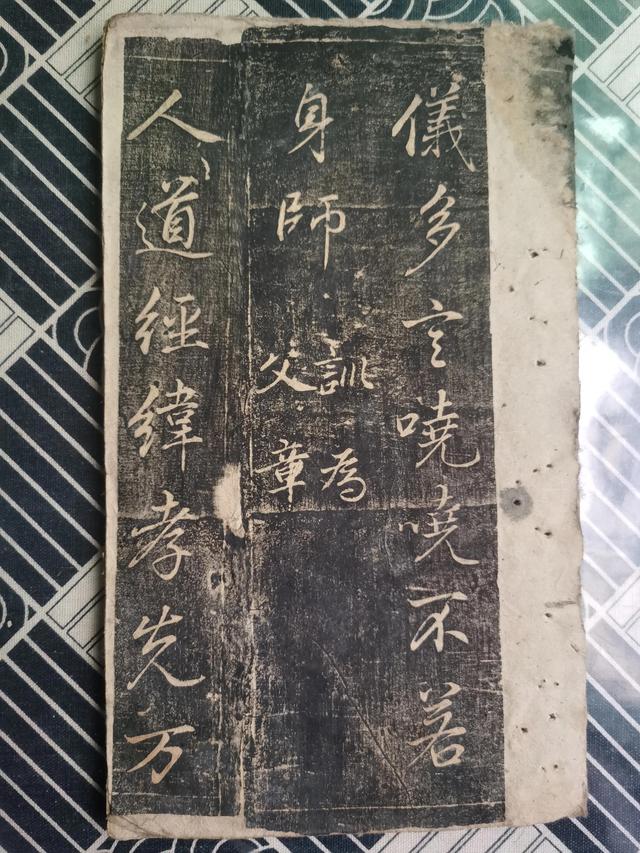 儀多言嘵嘵不若
身師
訓為
父章
人道經緯孝先万